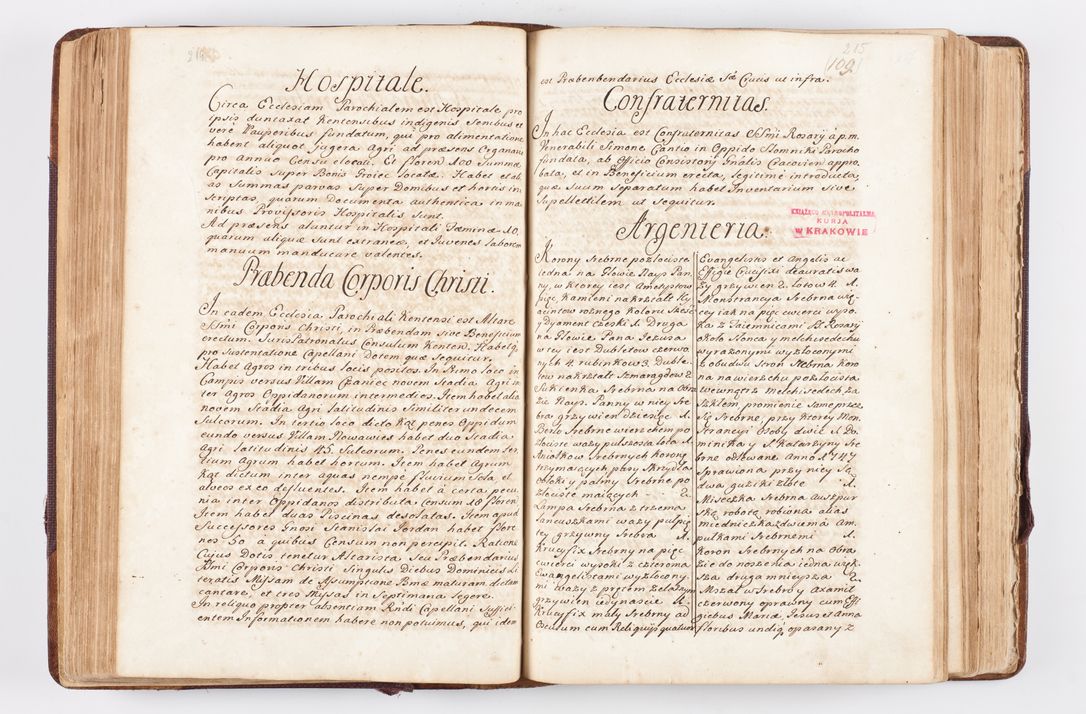 214
Hospitale.
Circa Ecclesiam Parochialem est Hospitale pro
ipsis duntaxat Kentensibus indigenis Senibus et
vere Pauperibus fundatum, qui pro alimentatione
habent aliquot Jugera Agri ad præsens Organario
pro Annuo Censu elocati. Et floren 100 Summæ
Capitalis Super Bonis Groiec locatæ. Habet et ali
as Summas parvas Super Domibus et hortis in
Scriptas, quarum Documenta authentica in ma
nibus Provisoris Hospitalis Sunt.
Ad præsens aluntur in Hospitali Fæminæ 10.
quarum aliquæ Sunt extraneæ, et Juvenes laborem
manuum manducare valentes.
Præbenda Corporis Christi.
In eadem Ecclesia Parochiali Kentensi est Altare
SSmi Corporis Christi, in Præbendam sive Beneficium
erectum. JurisPatronatus Consulum Kenten. Habetq;
pro Sustentatione Capellani Dotem quæ Sequitur.
Habet Agros in tribus locis positos. In Primo loco in
Campis versus Villam Czaniec novem Stadia Agri in
ter Agros Oppidanorum intermedios. Item habet alia
novem Stadia Agri latitudinis Similiter undecem
Sulcorum. In tertio loco dicto Kąt penes Oppidum
eundo versus Villam Nowawies habet duo Stadia
Agri latitudinis 45. Sulcorum. Penes eundem ter
tium Agrum habet hortum. Item habet Agrum
Kąt dictum inter aquas nempe fluvium Sola et
alveos ex eo defluentes. Item habet à certa pecu
nia inter Oppidanos distributa Censum 18 floren
Item habet duas Piscinas desolatas. Item apud
Successores Gnosi Stanislai Jordan habet flore
nos 50 à quibus Censum non percipit. Ratione
Cujus Dotis tenetur Altarista Seu Præbendarius
SSmi Corporis Christi Singulis Diebus Dominicis Li
teratis Missam de Assumptione Bmæ maturam dictam
cantare, et tres Missas in Septimana legere.
In reliquo propter absentiam Rndi Capellani Suffici
entem Informationem habere non potuimus, qui idem
215
(109)
est Præbenbendarius Ecclesiæ Stæ Crucis ut infra.
Confraternitas.
In hac Ecclesia est Confraternitas SSmi Rosarij à p.m.
Venerabili Simone Cantio in Oppido Słomniki Parocho
fundata, ab Officio Consistorij Gnãlis Cracovien appro
bata, et in Beneficium erecta, legitime introducta,
quæ Suum Separatum habet Inventarium sive
Supellectilem ut Sequitur.
KSIĄŻĘCO METROPOLITALNA
KURJA
w KRAKOWIE
Argenteria.
Korony Srebrne pozłociste
iedna na Głowie Nays Pan
ny, w ktorey iest Ametystow
pięc, Kamieni na kształt Hy
acintow roznego koloru Szesc
y Dyament czeski 1. Druga
na Głowie Pana Jezusa
w tey iest Dubletow czerwo
nych 4. rubinkow 3. Duble
tow na kształt Szmaragdow 2
Sukienka Srebrna na Obra
zie Nays. Panny w niey Sre
bra grzywien dziesięc 1.
Berło Srebrne wierzchem po
złociste wazy pulszosta łota 1.
Aniołkow Srebrnych koronę
trzymaiących pary Skrzydła
obłoki y palmy Srebrne po
złociste maiących 2.
Lampa Srebrna z trzema
łancuszkami wazy pulpię
tey grzywny Srebra 1.
Krucyfix Srebrny na pięc
cwierci wysoki z czterema
Ewangelistami wyzłocony
mi wazy z prętem zelaznym
grzywien iedynascie 1.
Krucyfix mały Srebrny ad
Osculum cum Reliquijs quatuor
Evangelistis et Angelis ac
Effigie Crucifixi deauratis wa
zy grzywien 2. łotow 4. 1.
Monstrancya Srebrna wię
cey iak na pięc cwierci wyso
ka z Taiemnicami SS. Rosarÿ
Około Słonca y melchisedechu
wyrazonymi wyzłoconymi
z obudwu stron Srebrna koro
na na wierzchu pozłocista
wewnątrz Melchisedech za
Szkłem, promienie Same przez
Się Srebrne, przy ktorey Mon
Strancyi osoby dwie S. Do
minika y S. Katarzyny Sre
brne odlewane Anno 1747
Sprawiona przy niey Są
dwa guziki złote 1.
Miseczka Srebrna Auszpur
Ską robotą robiona alias
miedniczka z dwiema Am
pułkami Srebrnemi 1.
Koron Srebrnych na Obra
zie do noszenia iedna więk
Sza druga mnieysza 2.
Mszał w Srebro y Axamit
czerwony oprawny cum Effi
giebus Maria, Jesus et Anna
floribus undiq; oparany z